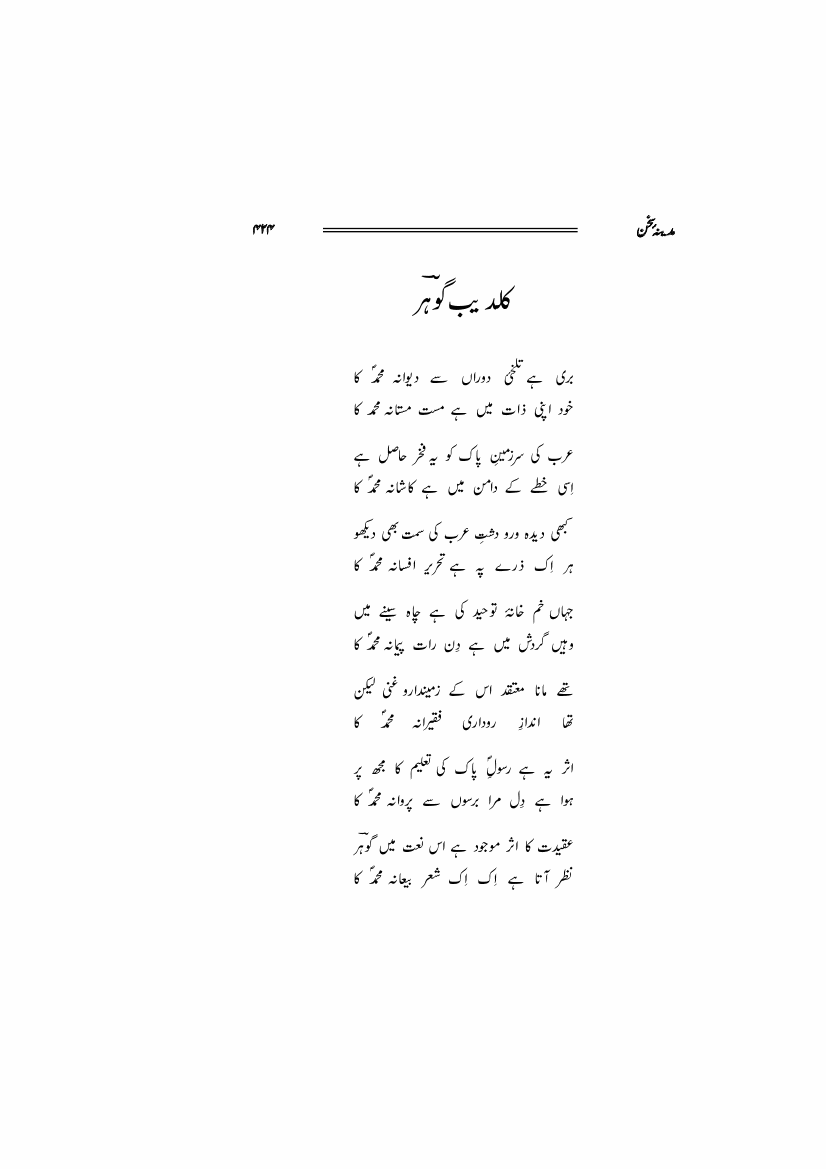 مدینۂ سخن ۴۲۴
کلدیب گوہرؔ
بری ہے تلخیٔ دوراں سے دیوانہ محمدؐ کا
خود اپنی ذات میں ہے مست مستانہ محمد کا
عرب کی سرزمینِ پاک کو یہ فخر حاصل ہے
اِسی خطے کے دامن میں ہے کاشانہ محمدؐ کا
کبھی دیدہ ورو دشتِ عرب کی سمت بھی دیکھو
ہر اِک ذرے پہ ہے تحریر افسانہ محمدؐ کا
جہاں خم خانۂ توحید کی ہے چاہ سینے میں
وہیں گردش میں ہے دِن رات پیمانہ محمدؐ کا
تھے مانا معتقد اس کے زمیندارو غنی لیکن
تھا اندازِ روداری فقیرانہ محمدؐ کا
اثر یہ ہے رسولِؐ پاک کی تعلیم کا مجھ پر
ہوا ہے دِل مرا برسوں سے پروانہ محمدؐ کا
عقیدت کا اثر موجود ہے اس نعت میں گوہرؔ
نظر آتا ہے اِک اِک شعر بیعانہ محمدؐ کا